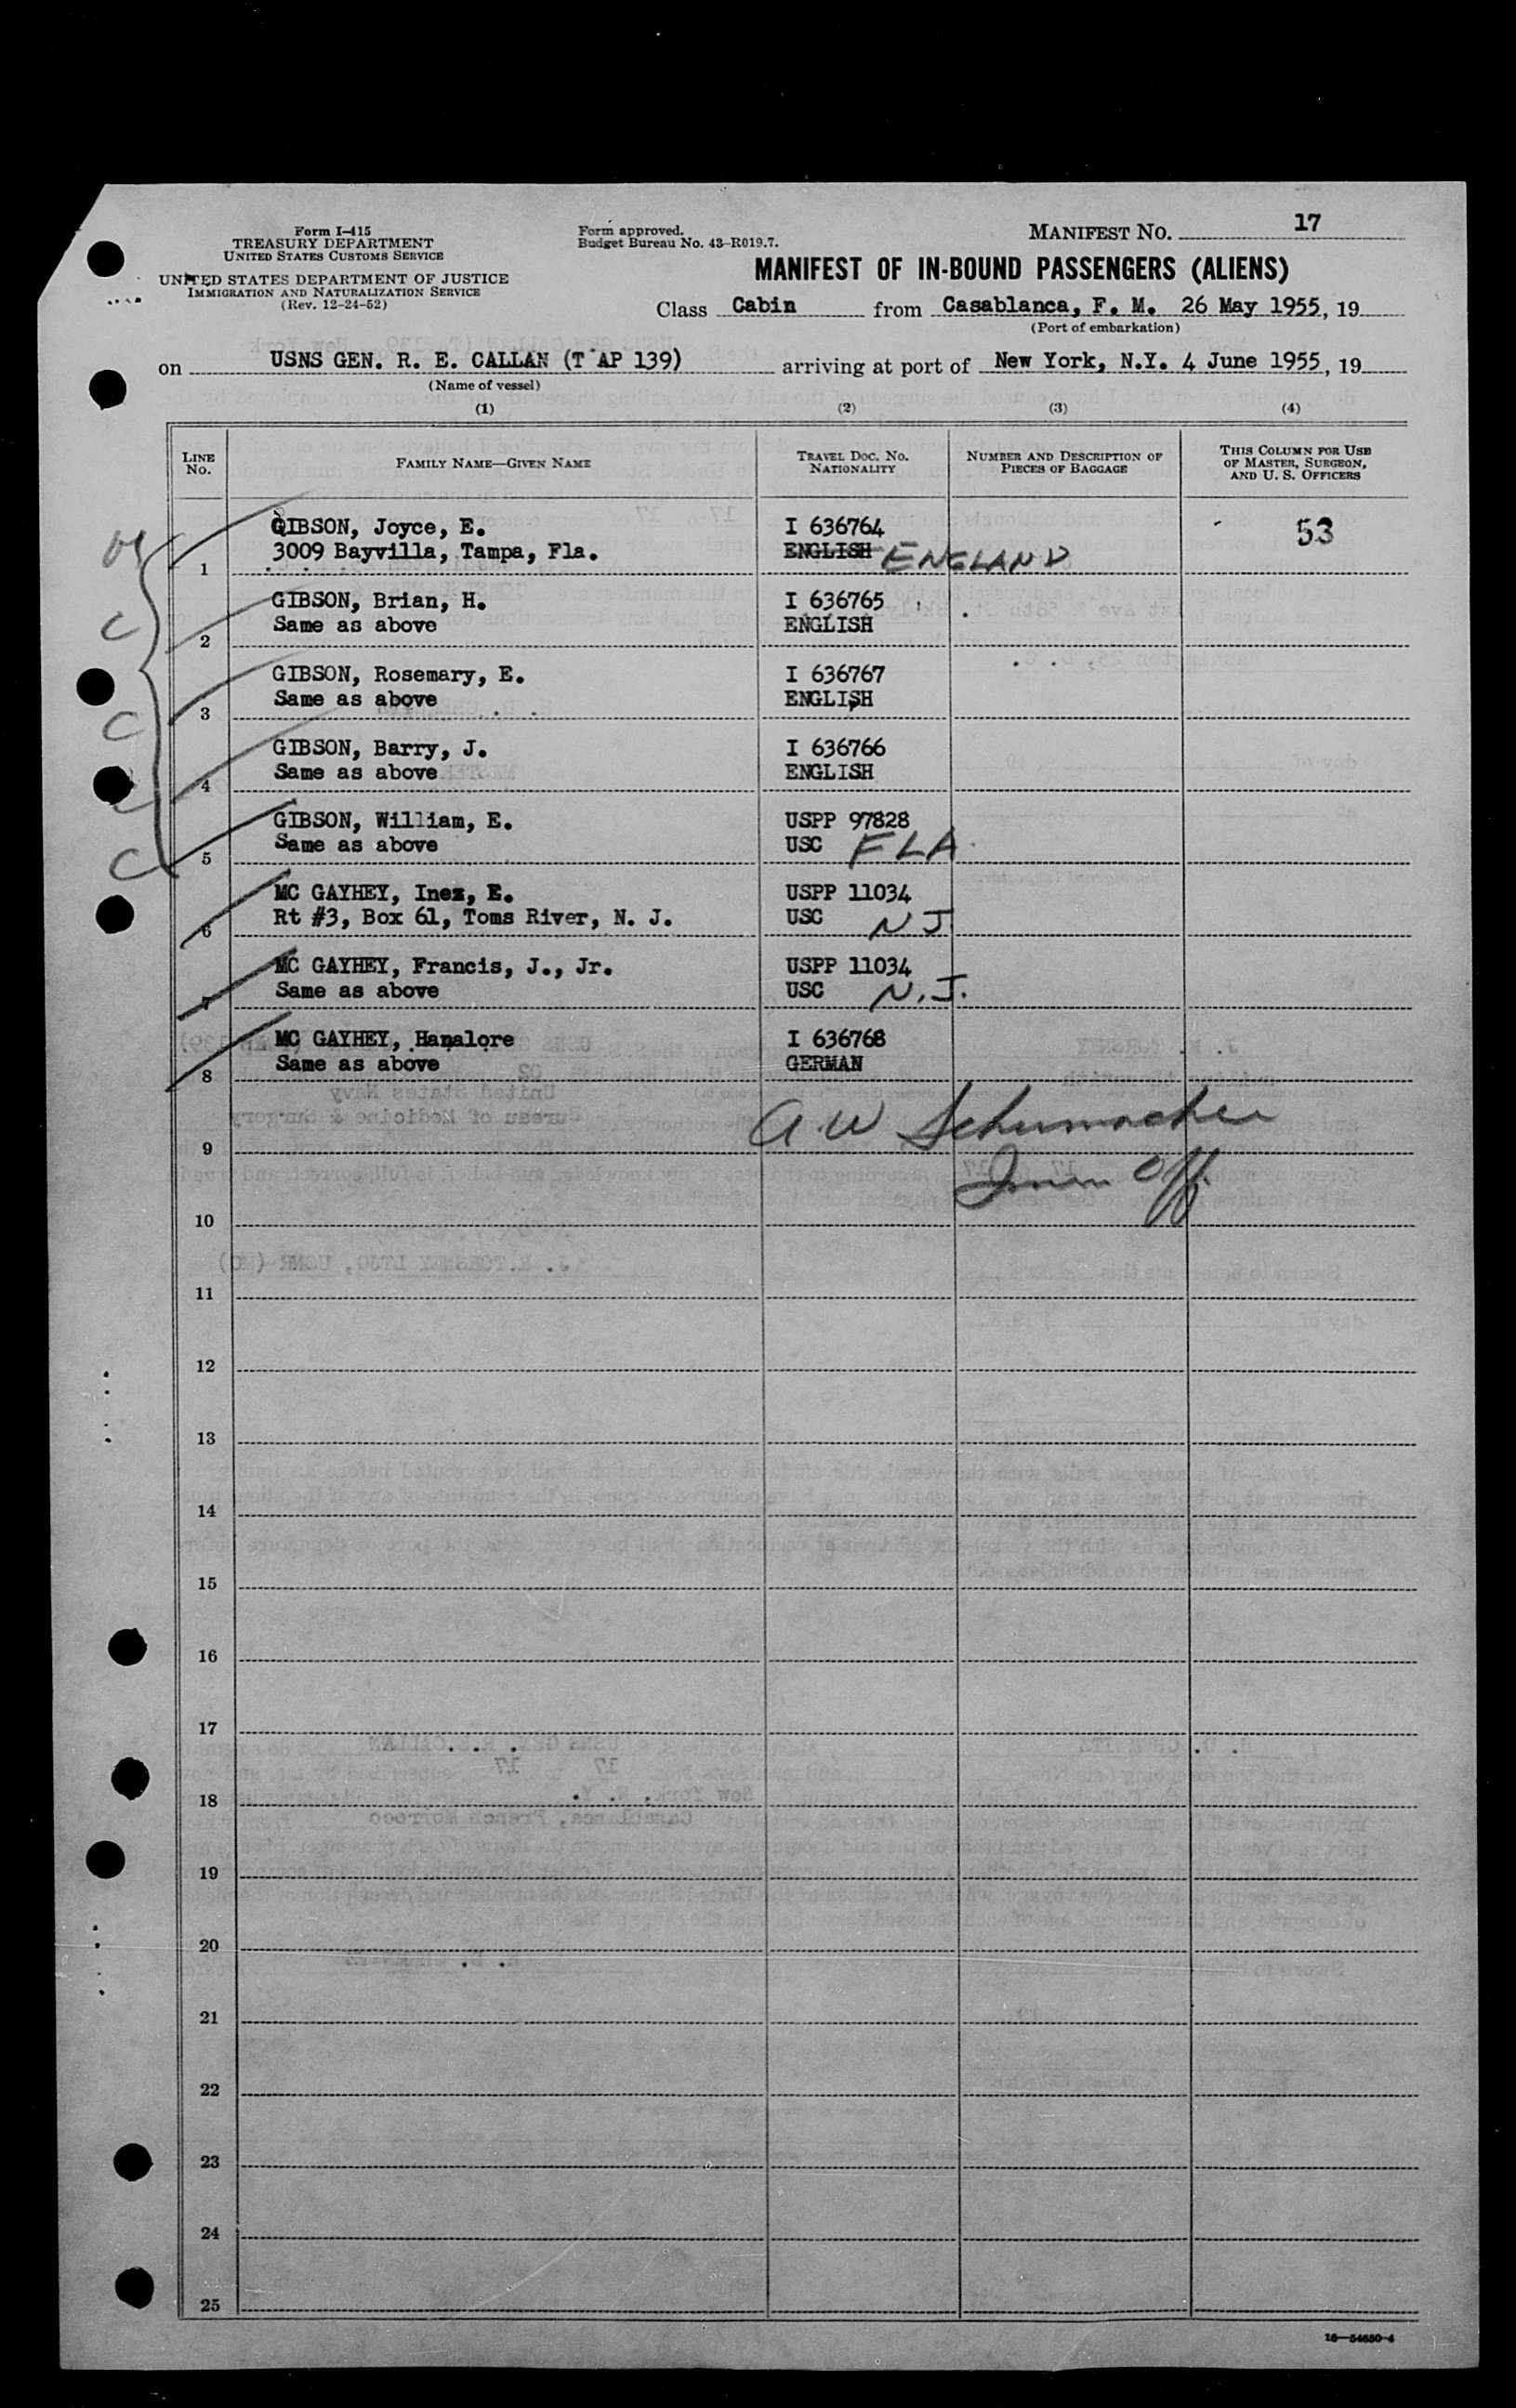 Form I-415
TREASURY DEPARTMENT
UNITED STATES CUSTOMS SERVICE
UNITED STATES DEPARTMENT OF JUSTICE
IMMIGRATION AND NATURALIZATION SERVICE
(Rev. 12-24-52)
Form approved.
Budget Bureau No. 43-R019.7.
MANIFEST No. 17
MANIFEST OF IN-BOUND PASSENGERS (ALIENS)
Class Cabin from Casablanca, F. M. 26 May 1955, 19
(Port of embarkation)
on USNS GEN. R. E. CALLAN (T AP 139) arriving at port of New York, N.Y. 4 June 1955, 19
(Name of vessel)
(1) (2) (3) (4)
LINE No. FAMILY NAME—GIVEN NAME TRAVEL DOC. NO. NATIONALITY NUMBER AND DESCRIPTION OF PIECES OF BAGGAGE THIS COLUMN FOR USE OF MASTER, SURGEON, AND U. S. OFFICERS
GIBSON, Joyce, E. I 636764 53
1 3009 Bayvilla, Tampa, Fla. ENGLISH ENGLAND
C GIBSON, Brian, H. I 636765
2 Same as above ENGLISH
GIBSON, Rosemary, E. I 636767
C 3 Same as above ENGLISH
GIBSON, Barry, J. I 636766
4 Same as above ENGLISH
GIBSON, William, E. USPP 97828
C 5 Same as above USC FLA
MC GAYHEY, Inez, E. USPP 11034
6 Rt #3, Box 61, Toms River, N. J. USC NJ
MC GAYHEY, Francis, J., Jr. USPP 11034
7 Same as above USC N.J.
MC GAYHEY, Hanalore I 636768
8 Same as above GERMAN
A W Schumacher
9
Imm Off
10
11
12
13
14
15
16
17
18
19
20
21
22
23
24
25
16—54650-4